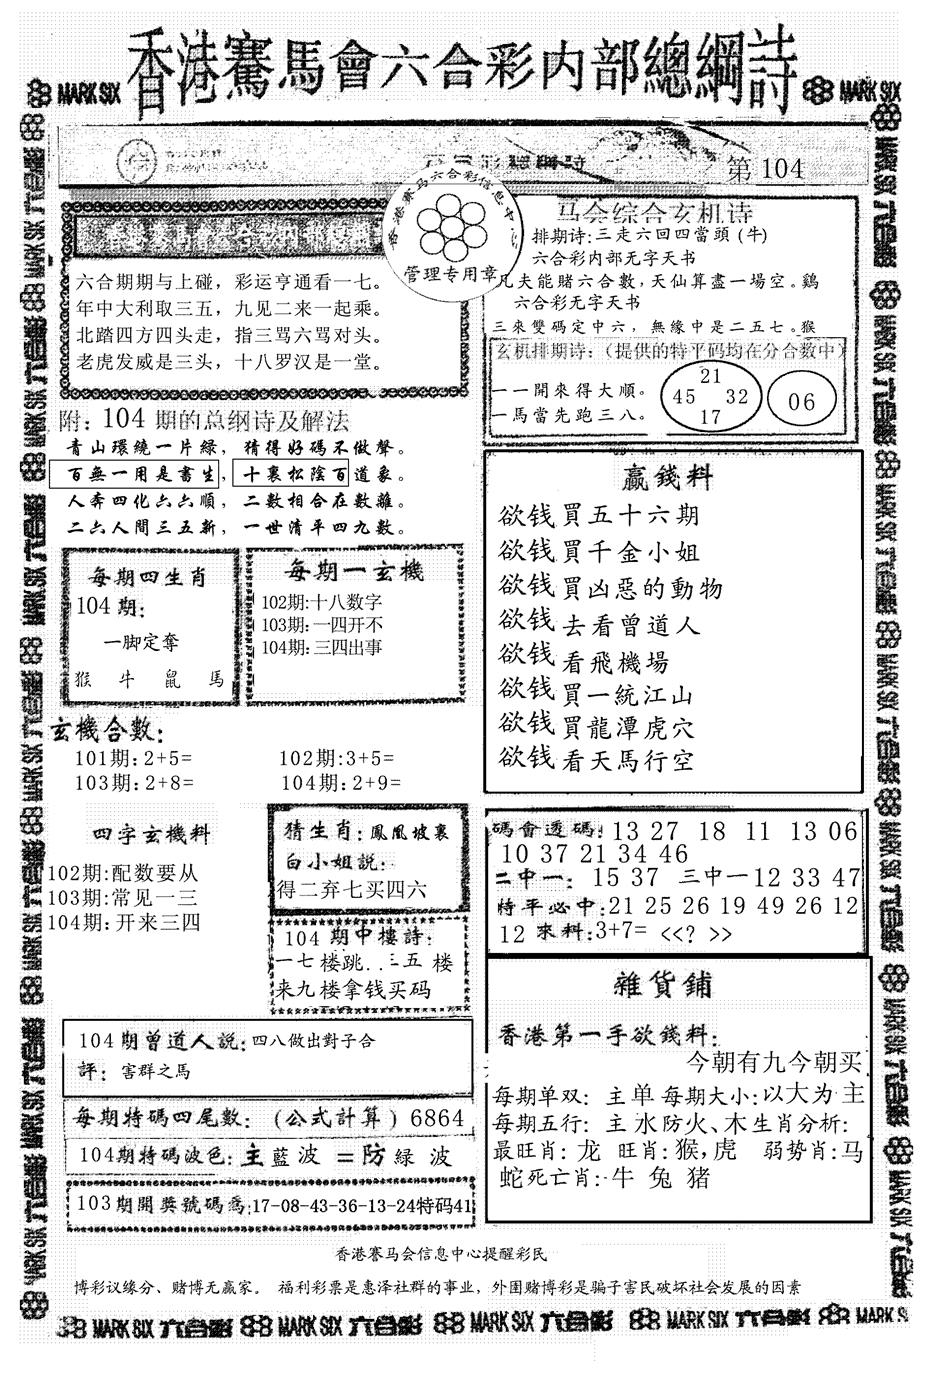 香港賽馬會六合彩内部總綱詩
MARK SIX
MARK SIX
第 104
香港赛马六合彩信息中心
管理专用章
六合期期与上碰，彩运亨通看一七。
年中大利取三五，九见二来一起乘。
北踏四方四头走，指三骂六骂对头。
老虎发威是三头，十八罗汉是一堂。
马会综合玄机诗
排期诗:三走六回四當頭 (牛)
六合彩内部无字天书
凡夫能賭六合數,天仙算盡一場空。鷄
六合彩无字天书
三來雙码定中六，無缘中是二五七。猴
玄机排期诗：(提供的特平码均在分合数中)
一一開來得大順。
一馬當先跑三八。
21
45 32
17
06
附：104 期的总纲诗及解法
青山環繞一片緑，猜得好碼不做聲。
百無一用是書生，十裏松陰百道象。
人奔四化六六順，二數相合在數離。
二六人間三五新，一世清平四九數。
每期四生肖
104期：
一脚定奪
猴 牛 鼠 馬
每期一玄機
102期:十八数字
103期:一四开不
104期:三四出事
玄機合數：
101期:2+5=
102期:3+5=
103期:2+8=
104期:2+9=
四字玄機料
102期:配数要从
103期:常见一三
104期:开来三四
猜生肖：鳳凰坡裏
白小姐説：
得二弃七买四六
104 期中樓詩：
一七楼跳..三五 楼
来九楼拿钱买码
赢錢料
欲钱買五十六期
欲钱買千金小姐
欲钱買凶惡的動物
欲钱去看曾道人
欲钱看飛機場
欲钱買一統江山
欲钱買龍潭虎穴
欲钱看天馬行空
碼會透碼：13 27 18 11 13 06
10 37 21 34 46
二中一：15 37 三中一12 33 47
特平必中：21 25 26 19 49 26 12
12 來料：3+7= <<? >>
雜貨鋪
香港第一手欲錢料：
今朝有九今朝买
每期单双：主单 每期大小:以大为主
每期五行：主 水防火、木生肖分析:
最旺肖:龙 旺肖:猴,虎 弱势肖:马
蛇死亡肖:牛 兔 猪
104期曾道人説：四八做出對子合
評：害群之馬
每期特碼四尾數：(公式計算) 6864
104期特碼波色：主 藍 波 =防 緑 波
103期開獎號碼爲:17-08-43-36-13-24特码41
香港赛马会信息中心提醒彩民
博彩议缘分、赌博无赢家。 福利彩票是惠泽社群的事业，外围赌博彩是骗子害民破坏社会发展的因素
MARK SIX 六合彩 MARK SIX 六合彩 MARK SIX 六合彩 MARK SIX 六合彩 MARK SIX